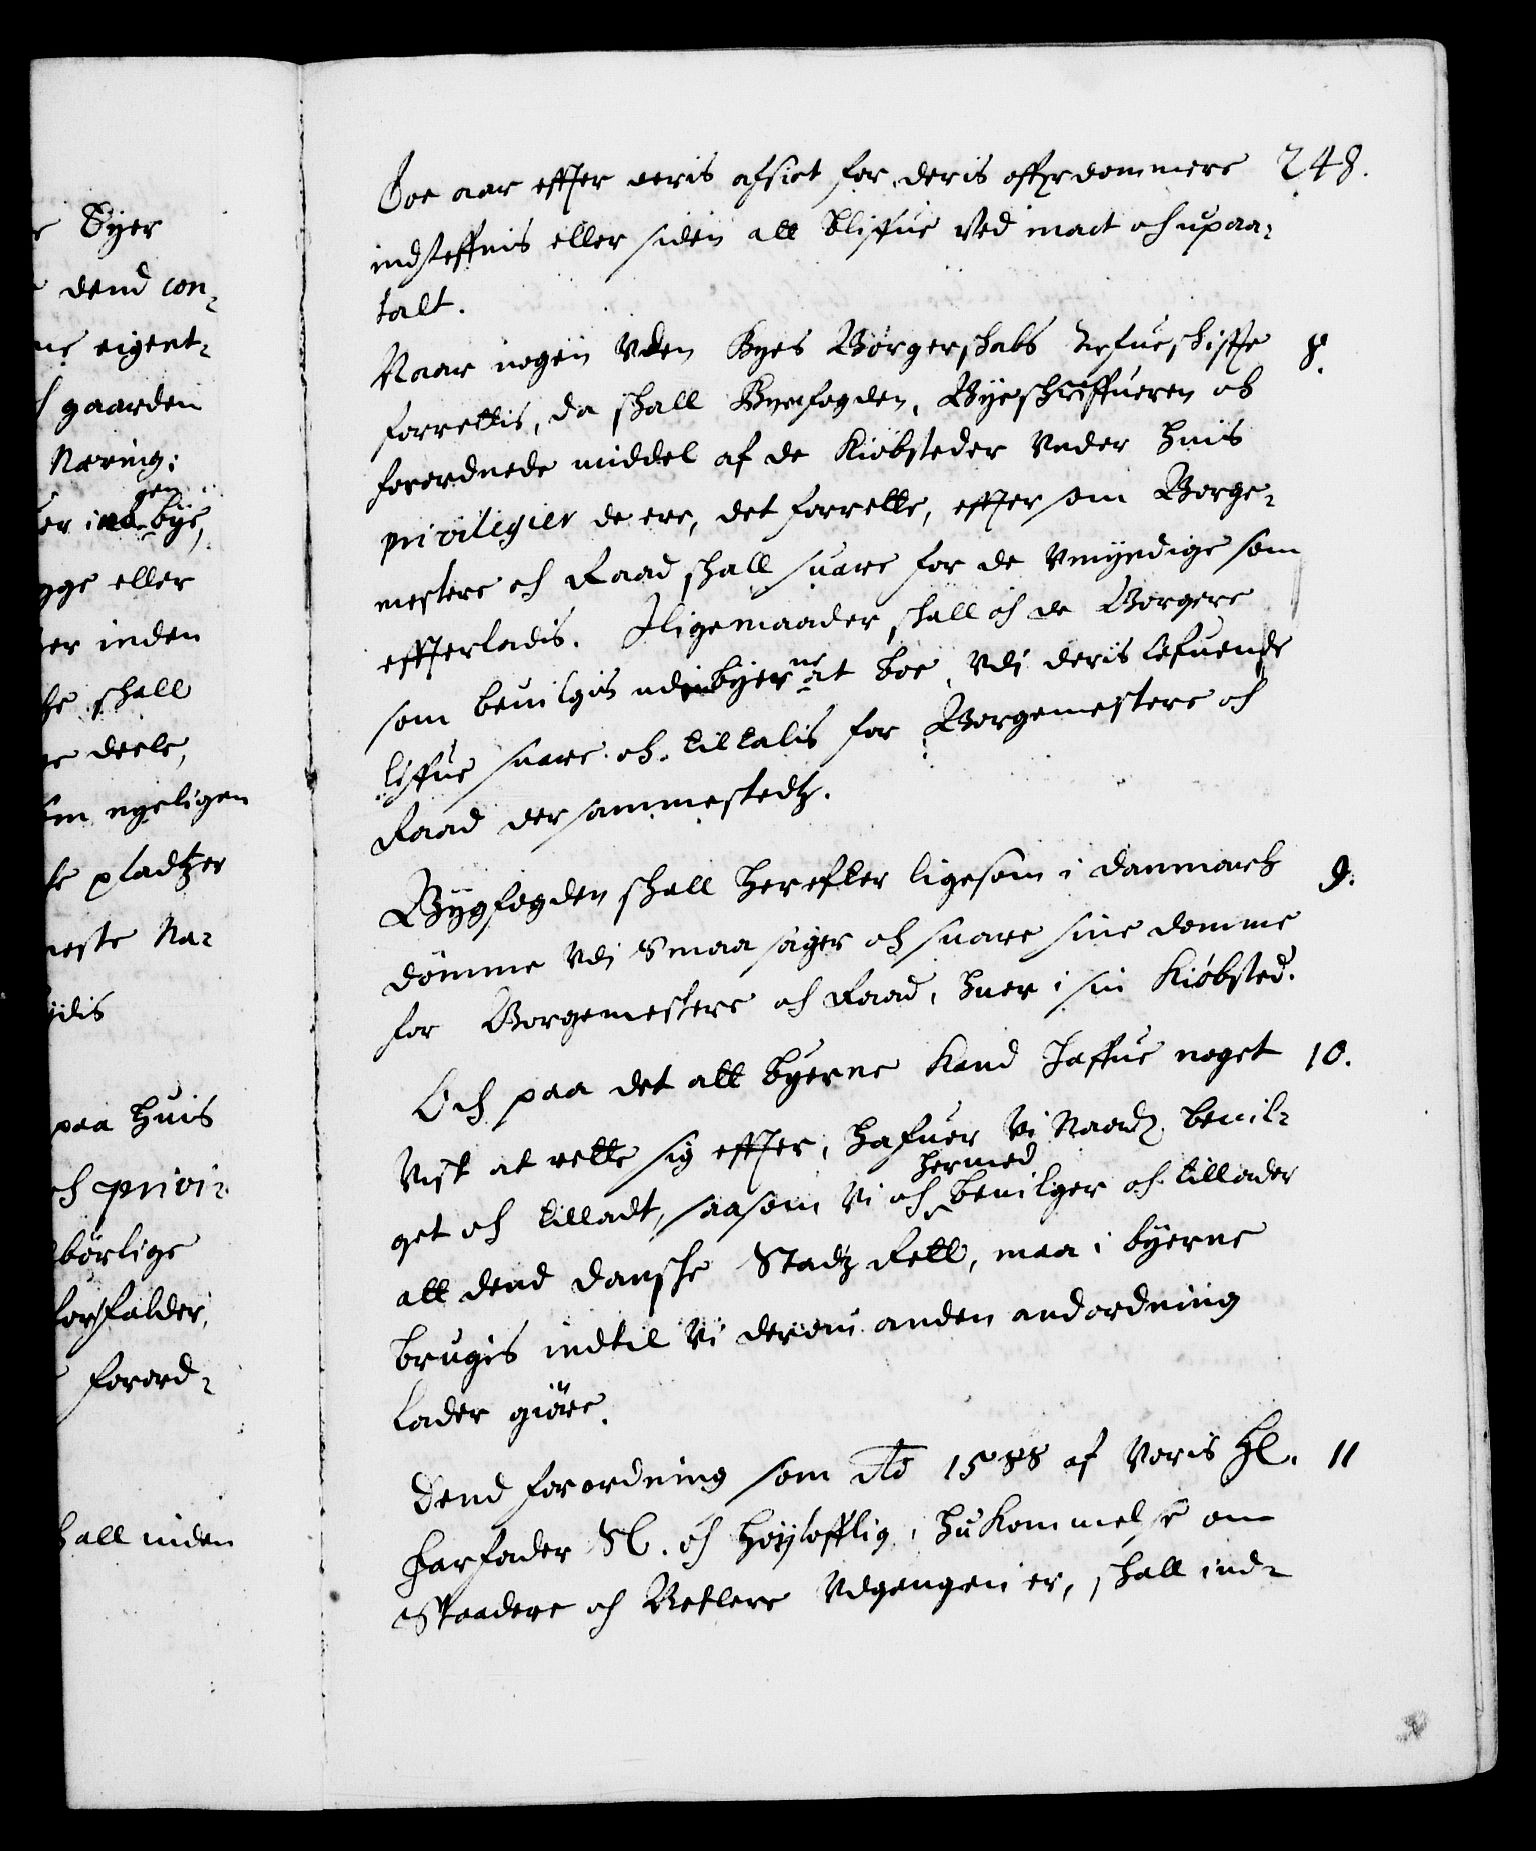 r Byer
dend con¬
ne eigent¬
gaarden
Næring:
gen
er ind bye,
gge eller
er inden
he shall
deele,
om ngeligen
he pladtzer
neste Na¬
ydis
paa huis
ch privi¬
börlige
forfalder,
forord¬
hall inden
248.
Toe aar effter deris afsict for deris offuerdommere
indsteffnis eller siden alt bliffue ved mact och upaa¬
talt.
8.
Naar nogen Uden Byes Börgerskabs Arfueskiffte
forrettis, da skall Byefogden, Byeschriffueren ob
forordnede middel af de Kiöbsteder Under huis
privilegier de ere, det forrette, effter som Borge¬
mestere och Raad skall suare for de Umyndige som
effterladis. Iligemaader skall och de Borgere
som beuilgis udenbyes
at boe, Udj deris lefuende
liffue suare och tiltalis for Borgemestere och
Raad der sammestedtz.
9.
Bygfogden skall herefter ligesom i Danmark
dömme Udj Smaa sager och suare sine domme
for Borgemestere och Raad, huer i sin Kiöbsted.
10.
Och paa det att byerne Kand haffue noget
Vist at rette sig effter, hafuer Vi Naadz. beuil¬
get och tilladt, saasom Vi och hermed beuilger och tillader
att dend danske Stadtz Rett, maa i byerne
brugis indtil Vi derom anden anordning
lader giöre.
11
Dend forordning som Ao 1588 af Voris Hl.
Farfader Sl. och Höylofflig, hukommelse om
Staadere och Betlere Udgangen er, skall ind¬